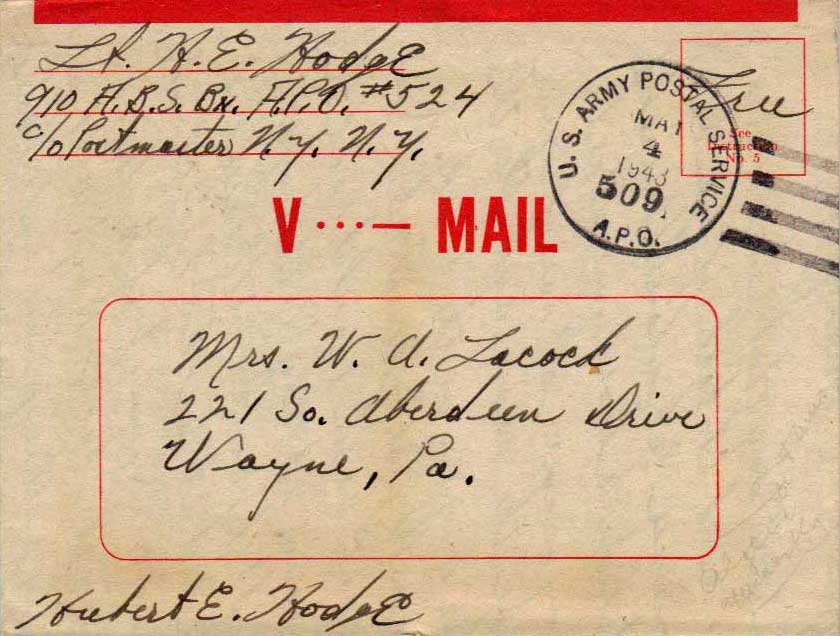 Lt. H. E. Hodge
910 A.B.S. Bn. A.P.O. #524
c/o Postmaster N.Y. N.Y.
Free
See
Instruction
No. 5
U. S. ARMY POSTAL SERVICE
MAY
4
1943
509
A.P.O.
V ···— MAIL
Mrs. W. A. Lacock
221 So. Aberdeen Drive
Wayne, Pa.
Hubert E. Hodge